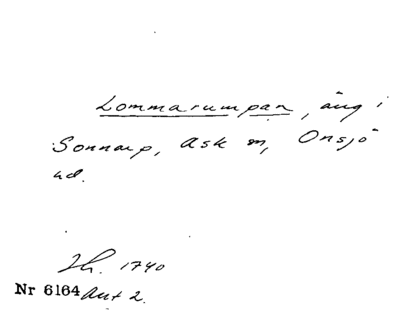 Lommarumpan, äng i
Sonnarp, Ask sn, Onsjö
hd.
Lh. 1740
Nr 6164 Akt 2.